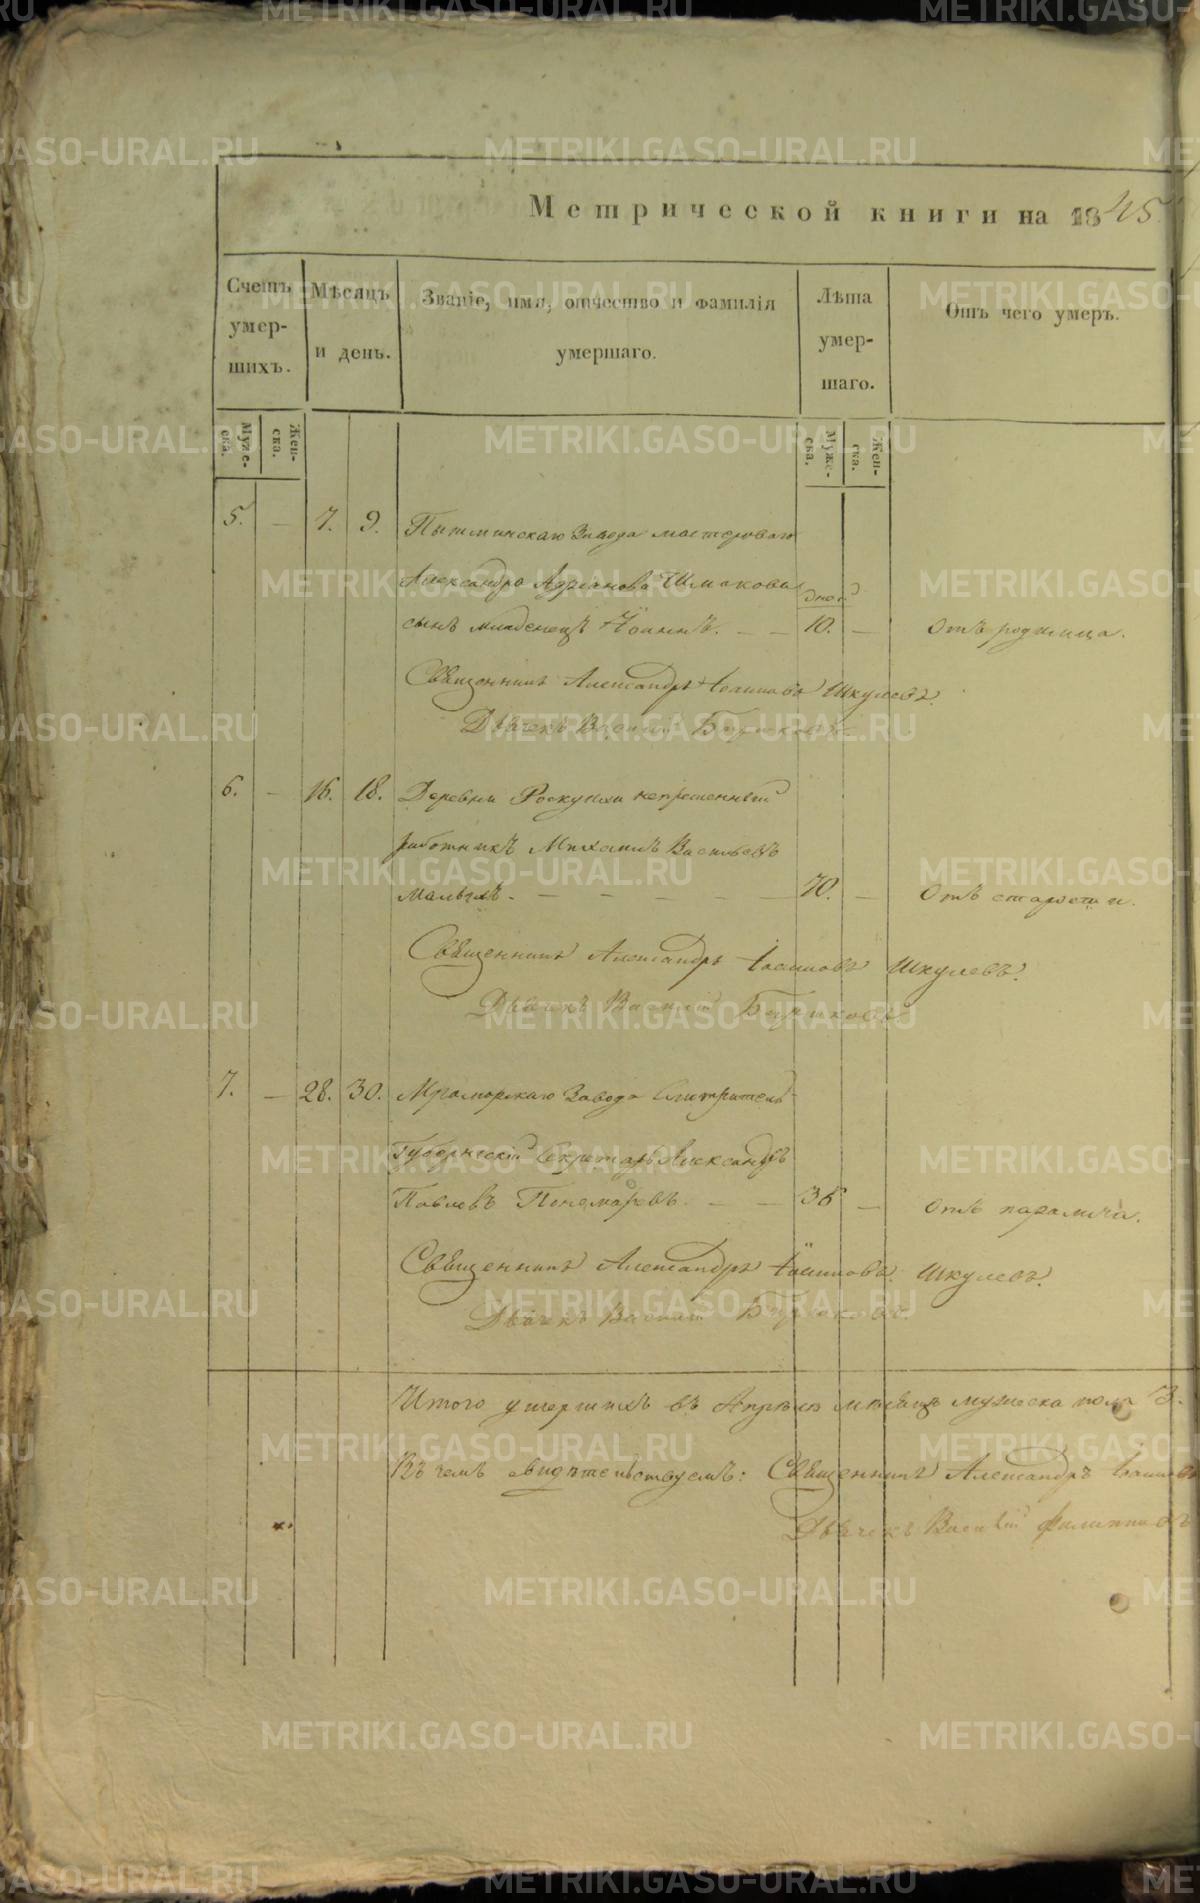 Метрической книги на 1845
Счетъ умер- шихъ.
Мѣсяцъ и день.
Званіе, имя, отчество и фамилія умершаго.
Лѣта умер- шаго.
Отъ чего умеръ.
Муже- ска.
Жен- ска.
Муже- ска.
Жен- ска.
5. — 7. 9. Пышминскаго Завода мастероваго
Александра Адріанова Шмакова
дней
сынъ младенецъ Іоаннъ. — — 10. — Отъ родимца.
Священникъ Александръ Іоанновъ Шкулевъ.
Дьячекъ Василій
6. — 16. 18. Деревни непременный
работникъ Михаилъ Васильевъ
Малыхъ. — — — — — 70. — Отъ старости.
Священникъ Александръ Іоанновъ Шкулевъ.
Дьячекъ Василій
7. — 28. 30. Мраморскаго Завода Смотритель
Губернскій Секретарь Александръ
Павловъ Пономаревъ. — — 36 — Отъ паралича.
Священникъ Александръ Іоанновъ Шкулевъ.
Дьячекъ Василій
Итого умершихъ въ Апрѣлѣ мѣсяцѣ мужеска пола 3.
Въ чемъ свидѣтельствуемъ: Священникъ Александръ Іоанновъ
Дьячекъ Василій Филипповъ
METRIKI.GASO-URAL.RU